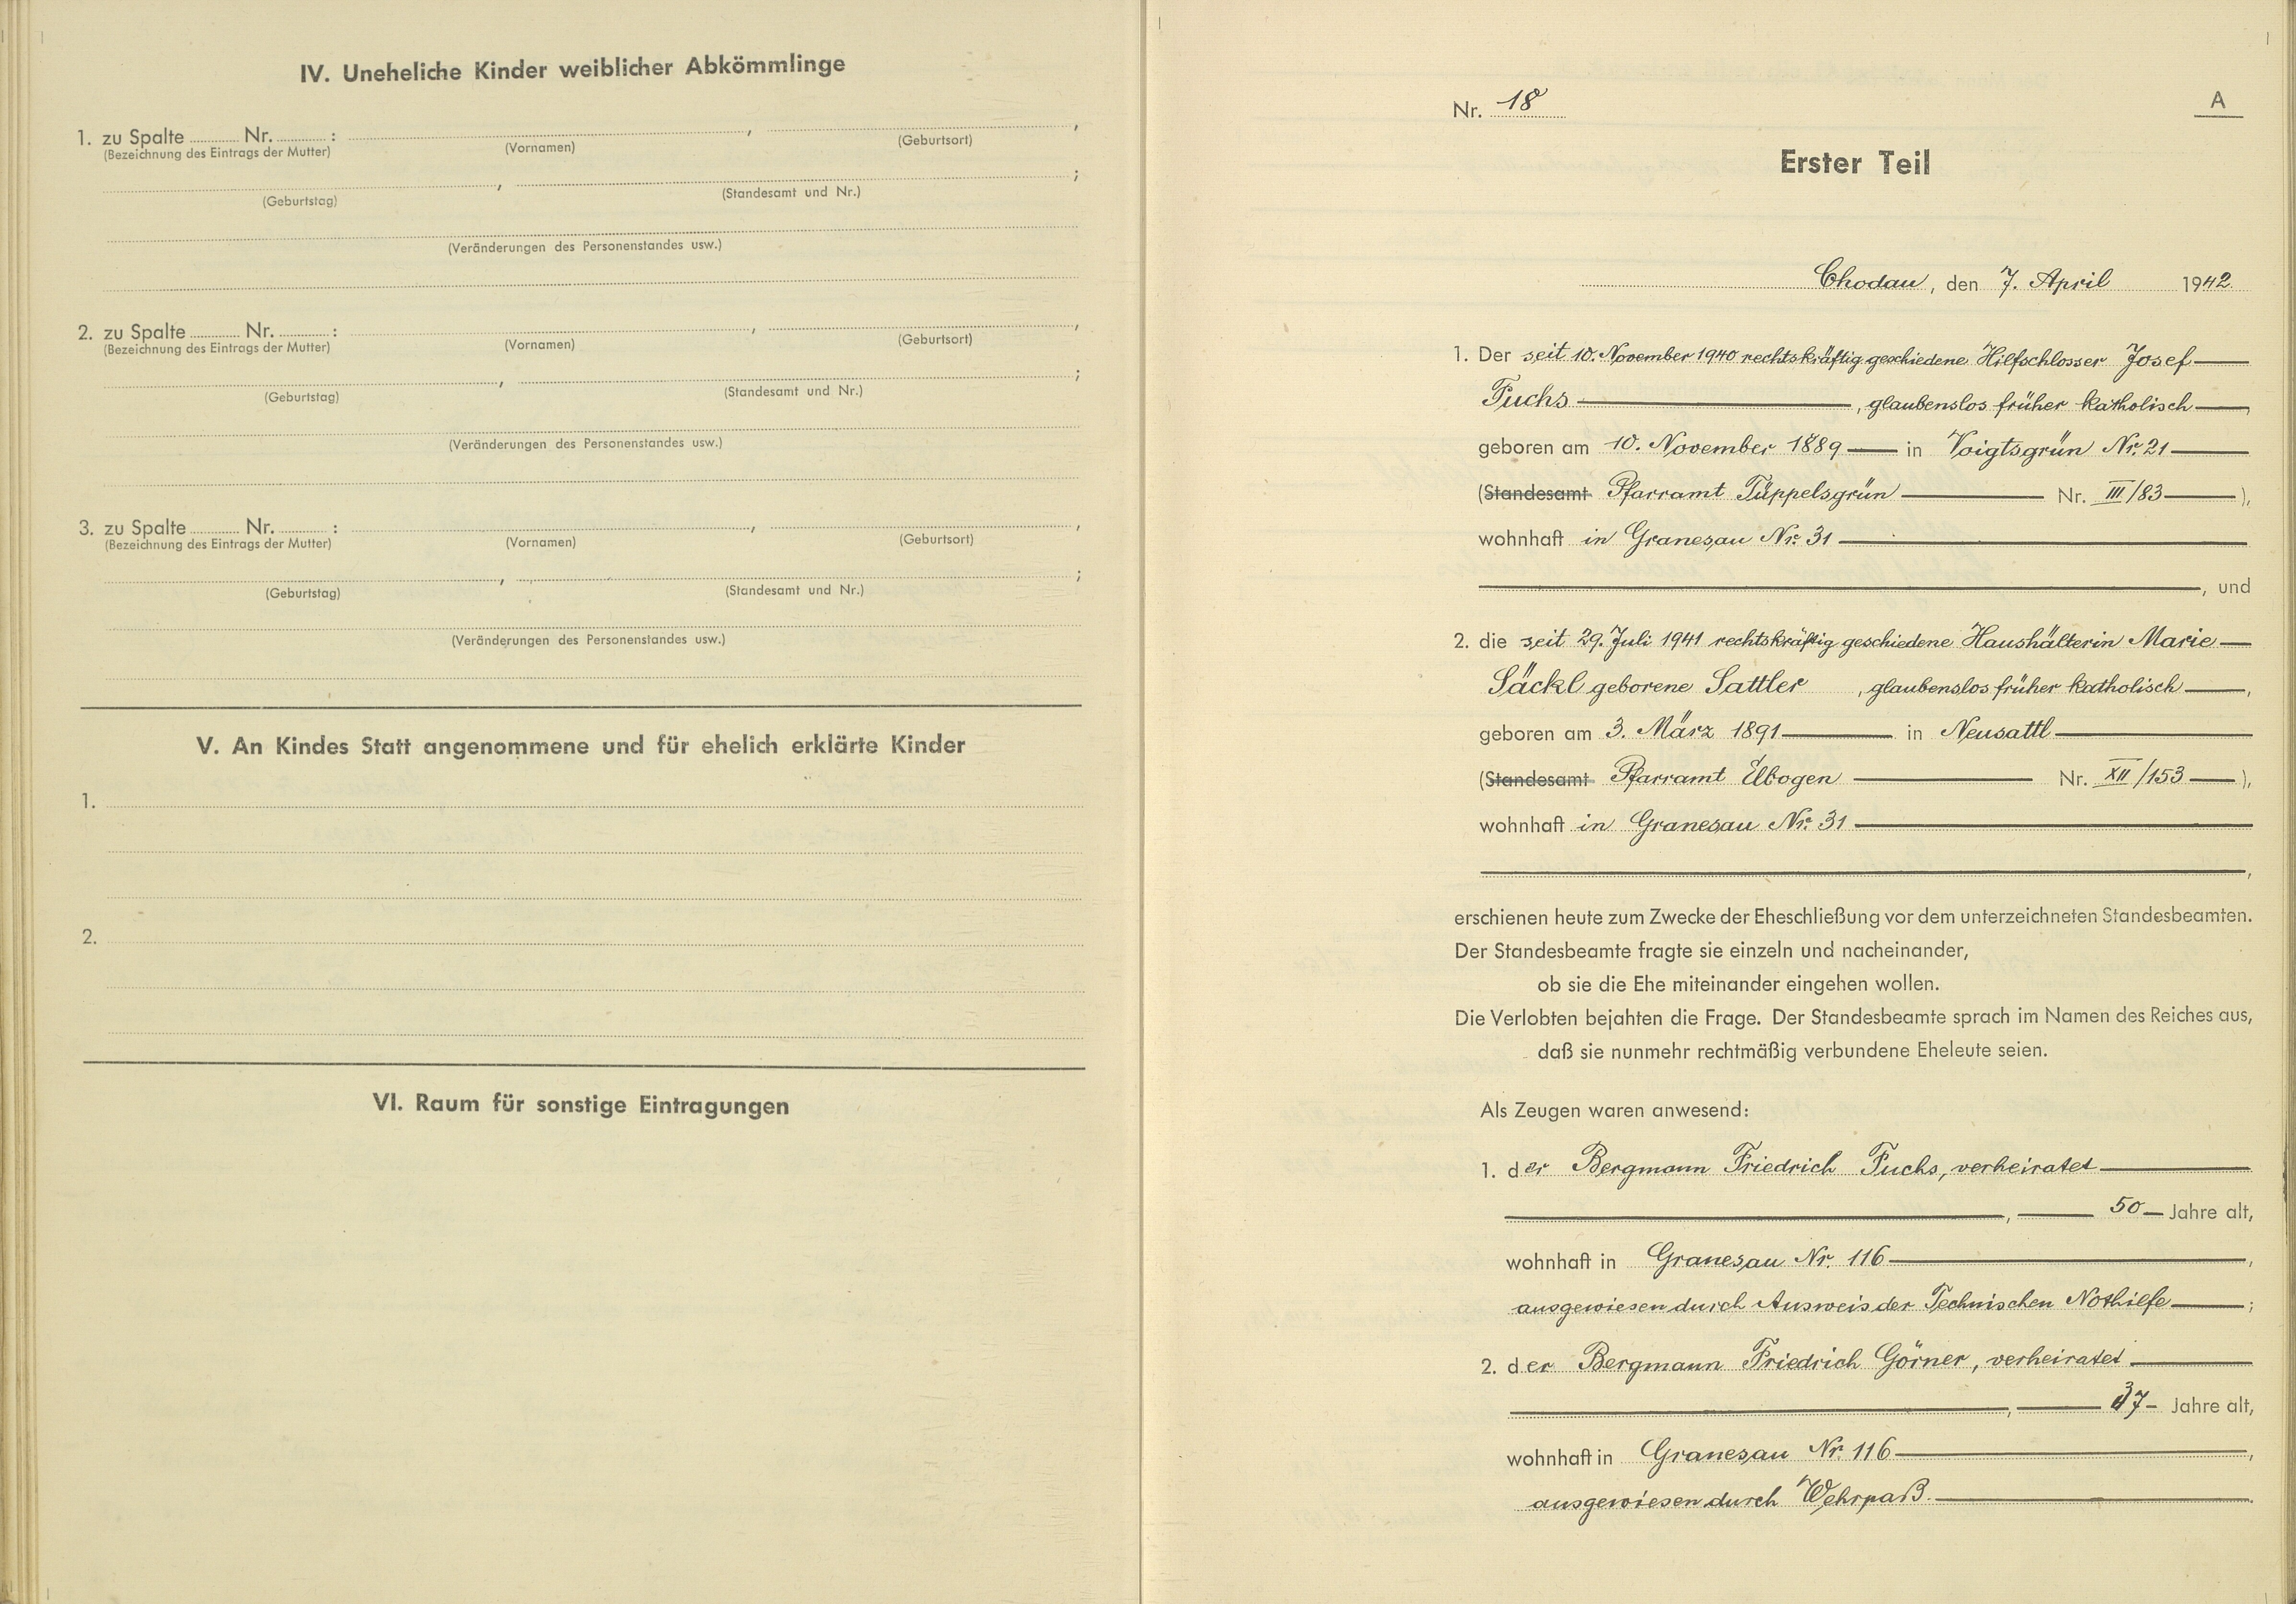 IV. Uneheliche Kinder weiblicher Abkömmlinge
1. zu Spalte ........ Nr. ........ : , ,
(Bezeichnung des Eintrags der Mutter) (Vornamen) (Geburtsort)
, ;
(Geburtstag) (Standesamt und Nr.)
(Veränderungen des Personenstandes usw.)
2. zu Spalte ........ Nr. ........ : , ,
(Bezeichnung des Eintrags der Mutter) (Vornamen) (Geburtsort)
, ;
(Geburtstag) (Standesamt und Nr.)
(Veränderungen des Personenstandes usw.)
3. zu Spalte ........ Nr. ........ : , ,
(Bezeichnung des Eintrags der Mutter) (Vornamen) (Geburtsort)
, ;
(Geburtstag) (Standesamt und Nr.)
(Veränderungen des Personenstandes usw.)
V. An Kindes Statt angenommene und für ehelich erklärte Kinder
1.
2.
VI. Raum für sonstige Eintragungen
Nr. 18
A
Erster Teil
Chodau, den 7. April 1942
1. Der seit 10. November 1940 rechtskräftig geschiedene Hilfschlosser Josef
Fuchs , glaubenslos früher katholisch ,
geboren am 10. November 1889 in Voigtsgrün Nr. 21
(Standesamt Pfarramt Tüppelsgrün Nr. III/83 ),
wohnhaft in Granesau Nr. 31
, und
2. die seit 29. Juli 1941 rechtskräftig geschiedene Haushälterin Marie
Säckl geborene Sattler , glaubenslos früher katholisch ,
geboren am 3. März 1891 in Neusattl
(Standesamt Pfarramt Elbogen Nr. XII/153 ),
wohnhaft in Granesau Nr. 31
,
erschienen heute zum Zwecke der Eheschließung vor dem unterzeichneten Standesbeamten.
Der Standesbeamte fragte sie einzeln und nacheinander,
ob sie die Ehe miteinander eingehen wollen.
Die Verlobten bejahten die Frage. Der Standesbeamte sprach im Namen des Reiches aus,
daß sie nunmehr rechtmäßig verbundene Eheleute seien.
Als Zeugen waren anwesend:
1. der Bergmann Friedrich Fuchs, verheiratet
, 50 Jahre alt,
wohnhaft in Granesau Nr. 116 ,
ausgewiesen durch Ausweis der Technischen Nothilfe ;
2. der Bergmann Friedrich Görner, verheiratet
, 37 Jahre alt,
wohnhaft in Granesau Nr. 116 ,
ausgewiesen durch Wehrpaß .